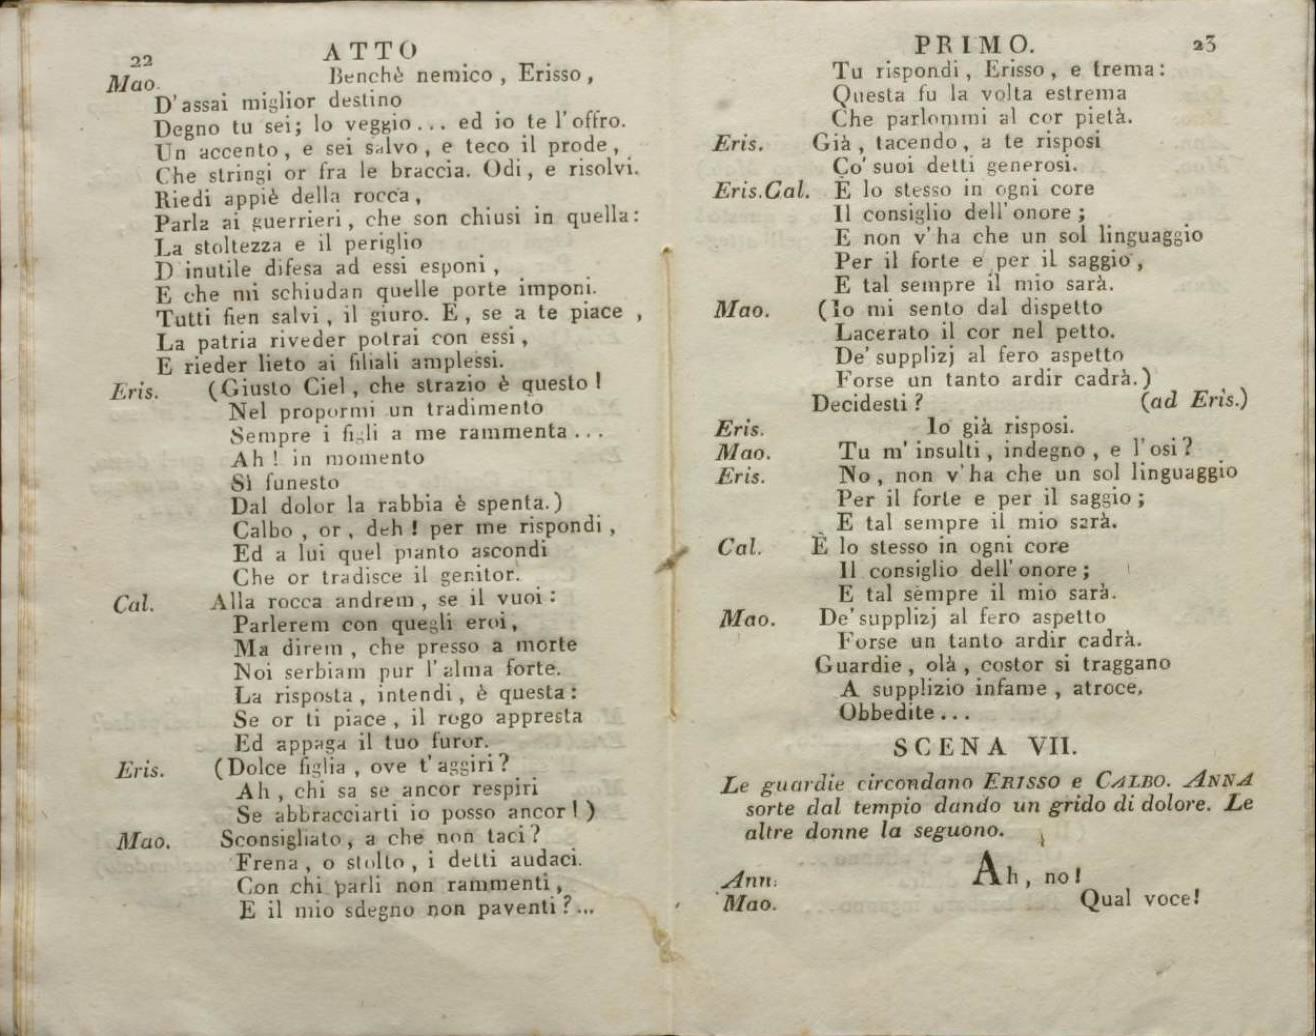 22
ATTO
Mao. Benchè nemico, Erisso,
D'assai miglior destino
Degno tu sei; lo veggio... ed io te l'offro.
Un accento, e sei salvo, e teco il prode,
Che stringi or fra le braccia. Odi, e risolvi.
Riedi appiè della rocca,
Parla ai guerrieri, che son chiusi in quella:
La stoltezza e il periglio
D'inutile difesa ad essi esponi,
E che mi schiudan quelle porte imponi.
Tutti fien salvi, il giuro. E, se a te piace,
La patria riveder potrai con essi,
E rieder lieto ai filiali amplessi.
Eris. (Giusto Ciel, che strazio è questo!
Nel propormi un tradimento
Sempre i figli a me rammenta...
Ah! in momento
Sì funesto
Dal dolor la rabbia è spenta.)
Calbo, or, deh! per me rispondi,
Ed a lui quel pianto ascondi
Che or tradisce il genitor.
Cal. Alla rocca andrem, se il vuoi:
Parlerem con quegli eroi,
Ma direm, che presso a morte
Noi serbiam pur l'alma forte.
La risposta, intendi, è questa:
Se or ti piace, il rogo appresta
Ed appaga il tuo furor.
Eris. (Dolce figlia, ove t'aggiri?
Ah, chi sa se ancor respiri
Se abbracciarti io posso ancor!)
Mao. Sconsigliato, a che non taci?
Frena, o stolto, i detti audaci.
Con chi parli non rammenti,
E il mio sdegno non paventi?...
PRIMO.
23
Tu rispondi, Erisso, e trema:
Questa fu la volta estrema
Che parlommi al cor pietà.
Eris. Già, tacendo, a te risposi
Co' suoi detti generosi.
Eris. Cal. È lo stesso in ogni core
Il consiglio dell'onore;
E non v'ha che un sol linguaggio
Per il forte e per il saggio,
E tal sempre il mio sarà.
Mao. (Io mi sento dal dispetto
Lacerato il cor nel petto.
De' supplizj al fero aspetto
Forse un tanto ardir cadrà.)
Decidesti? (ad Eris.)
Eris. Io già risposi.
Mao. Tu m'insulti, indegno, e l'osi?
Eris. No, non v'ha che un sol linguaggio
Per il forte e per il saggio;
E tal sempre il mio sarà.
Cal. È lo stesso in ogni core
Il consiglio dell'onore;
E tal sempre il mio sarà.
Mao. De' supplizj al fero aspetto
Forse un tanto ardir cadrà.
Guardie, olà, costor si traggano
A supplizio infame, atroce,
Obbedite...
SCENA VII.
Le guardie circondano ERISSO e CALBO. ANNA
sorte dal tempio dando un grido di dolore. Le
altre donne la seguono.
Ann. Ah, no!
Mao. Qual voce!